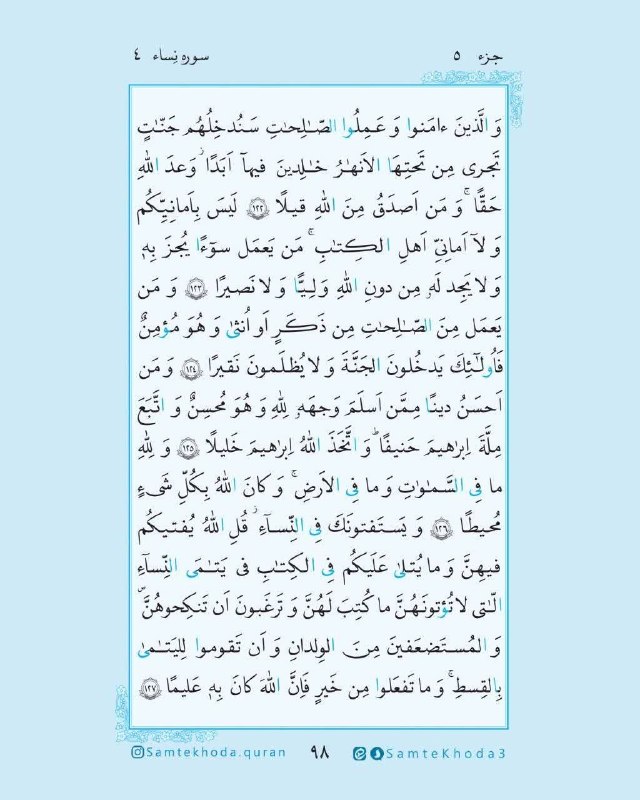 جزء ۵ سوره نِساء ۴
وَ الَّذينَ ءامَنوا وَ عَمِلُوا الصّـٰلِحـٰتِ سَنُدخِلُهُم جَنّـٰتٍ
تَجرى مِن تَحتِهَا الاَنهـٰرُ خـٰلِدينَ فيهآ اَبَدًا ۖ وَعدَ اللهِ
حَقًّا ۚ وَ مَن اَصدَقُ مِنَ اللهِ قيلًا ﴿۱۲۲﴾ لَيسَ بِاَمانِيِّكُم
وَ لآ اَمانِىِّ اَهلِ الكِتـٰبِ ۗ مَن يَعمَل سوٓءًا يُجزَ بِهٖ
وَ لا يَجِد لَهٗ مِن دونِ اللهِ وَلِيًّا وَ لا نَصيرًا ﴿۱۲۳﴾ وَ مَن
يَعمَل مِنَ الصّـٰلِحـٰتِ مِن ذَكَرٍ اَو اُنثىٰ وَ هُوَ مُؤمِنٌ
فَاُولـٰٓئِكَ يَدخُلونَ الجَنَّةَ وَ لا يُظلَمونَ نَقيرًا ﴿۱۲۴﴾ وَ مَن
اَحسَنُ دينًا مِمَّن اَسلَمَ وَجهَهٗ لِلّهِ وَ هُوَ مُحسِنٌ وَ اتَّبَعَ
مِلَّةَ اِبرٰهيمَ حَنيفًا ۗ وَ اتَّخَذَ اللهُ اِبرٰهيمَ خَليلًا ﴿۱۲۵﴾ وَ لِلّهِ
ما فِى السَّمـٰوٰتِ وَ ما فِى الاَرضِ ۚ وَ كانَ اللهُ بِكُلِّ شَىءٍ
مُحيطًا ﴿۱۲۶﴾ وَ يَستَفتونَكَ فِى النِّسآءِ ۖ قُلِ اللهُ يُفتيكُم
فيهِنَّ وَ ما يُتلىٰ عَلَيكُم فِى الكِتـٰبِ فى يَتـٰمَى النِّسآءِ
الّـٰتى لا تُؤتونَهُنَّ ما كُتِبَ لَهُنَّ وَ تَرغَبونَ اَن تَنكِحوهُنَّ
وَ المُستَضعَفينَ مِنَ الوِلدانِ وَ اَن تَقوموا لِليَتـٰمىٰ
بِالقِسطِ ۚ وَ ما تَفعَلوا مِن خَيرٍ فَاِنَّ اللهَ كانَ بِهٖ عَليمًا ﴿۱۲۷﴾
Samtekhoda.quran ۹۸ SamteKhoda3